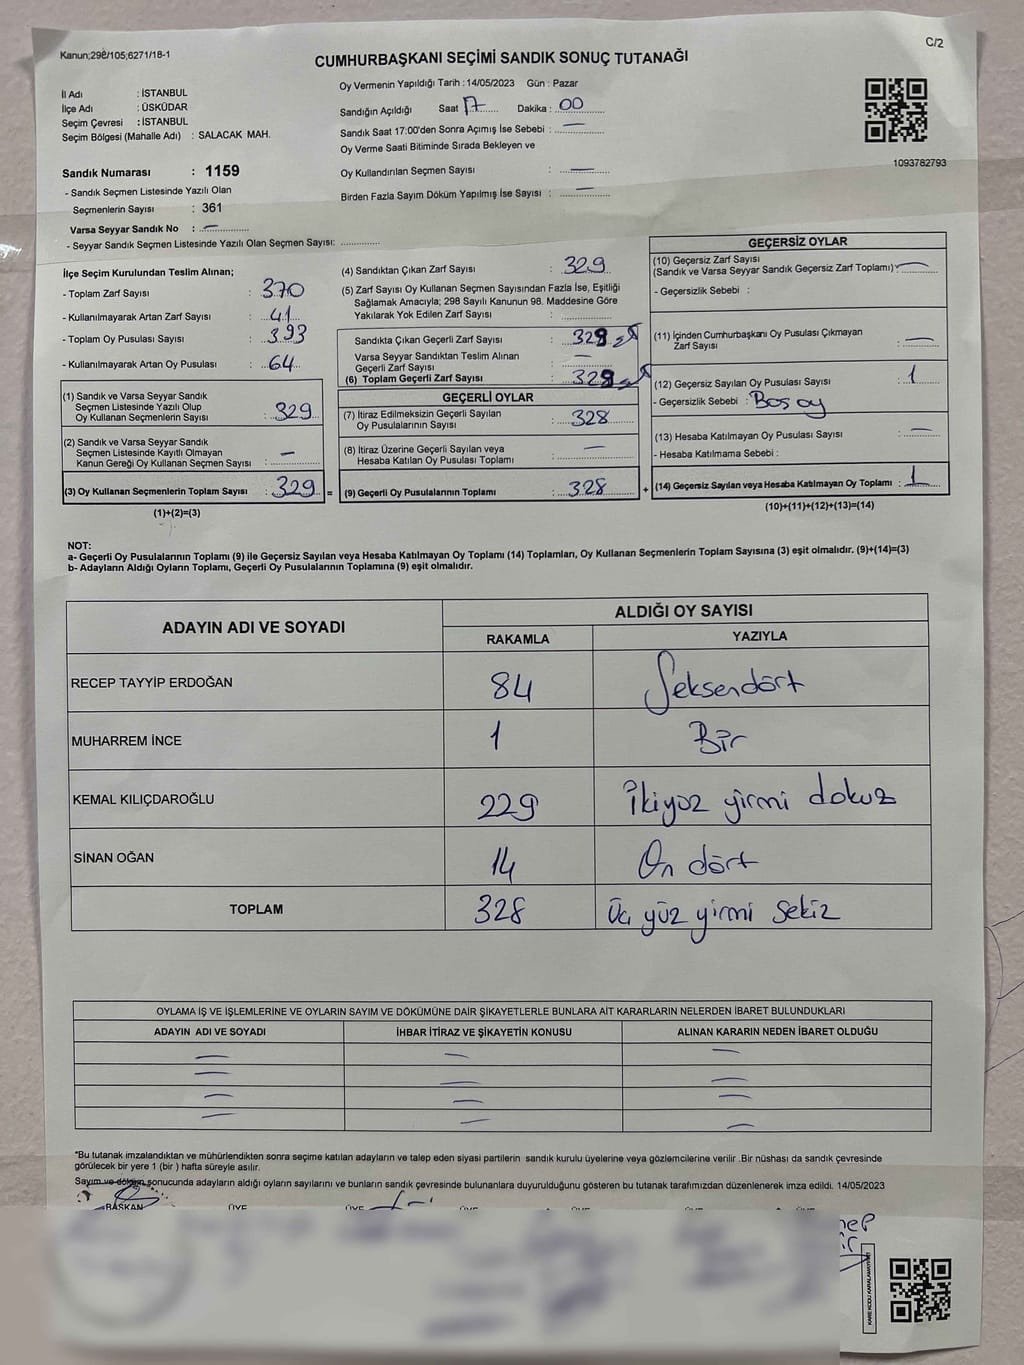 Kanun;298/105;6271/18-1
C/2
CUMHURBAŞKANI SEÇİMİ SANDIK SONUÇ TUTANAĞI
İl Adı : İSTANBUL
İlçe Adı : ÜSKÜDAR
Seçim Çevresi : İSTANBUL
Seçim Bölgesi (Mahalle Adı) : SALACAK MAH.
Oy Vermenin Yapıldığı Tarih : 14/05/2023 Gün : Pazar
Sandığın Açıldığı Saat 17 Dakika : 00
Sandık Saat 17:00'den Sonra Açımış İse Sebebi : —
Oy Verme Saati Bitiminde Sırada Bekleyen ve
Oy Kullandırılan Seçmen Sayısı : —
Birden Fazla Sayım Döküm Yapılmış İse Sayısı : —
1093782793
Sandık Numarası : 1159
- Sandık Seçmen Listesinde Yazılı Olan
Seçmenlerin Sayısı : 361
Varsa Seyyar Sandık No : —
- Seyyar Sandık Seçmen Listesinde Yazılı Olan Seçmen Sayısı: ............
İlçe Seçim Kurulundan Teslim Alınan;
- Toplam Zarf Sayısı : 370
- Kullanılmayarak Artan Zarf Sayısı : 41
- Toplam Oy Pusulası Sayısı : 393
- Kullanılmayarak Artan Oy Pusulası : 64
(1) Sandık ve Varsa Seyyar Sandık
Seçmen Listesinde Yazılı Olup
Oy Kullanan Seçmenlerin Sayısı : 329
(2) Sandık ve Varsa Seyyar Sandık
Seçmen Listesinde Kayıtlı Olmayan
Kanun Gereği Oy Kullanan Seçmen Sayısı : —
(3) Oy Kullanan Seçmenlerin Toplam Sayısı : 329 =
(1)+(2)=(3)
(4) Sandıktan Çıkan Zarf Sayısı : 329
(5) Zarf Sayısı Oy Kullanan Seçmen Sayısından Fazla İse, Eşitliği
Sağlamak Amacıyla; 298 Sayılı Kanunun 98. Maddesine Göre
Yakılarak Yok Edilen Zarf Sayısı : ............
Sandıkta Çıkan Geçerli Zarf Sayısı : 329
Varsa Seyyar Sandıktan Teslim Alınan
Geçerli Zarf Sayısı : —
(6) Toplam Geçerli Zarf Sayısı : 329
GEÇERLİ OYLAR
(7) İtiraz Edilmeksizin Geçerli Sayılan
Oy Pusulalarının Sayısı : 328
(8) İtiraz Üzerine Geçerli Sayılan veya
Hesaba Katılan Oy Pusulası Toplamı : —
(9) Geçerli Oy Pusulalarının Toplamı : 328 +
GEÇERSİZ OYLAR
(10) Geçersiz Zarf Sayısı
(Sandık ve Varsa Seyyar Sandık Geçersiz Zarf Toplamı) : —
- Geçersizlik Sebebi :
(11) İçinden Cumhurbaşkanı Oy Pusulası Çıkmayan
Zarf Sayısı : —
(12) Geçersiz Sayılan Oy Pusulası Sayısı : 1
- Geçersizlik Sebebi : Boş oy
(13) Hesaba Katılmayan Oy Pusulası Sayısı : —
- Hesaba Katılmama Sebebi :
(14) Geçersiz Sayılan veya Hesaba Katılmayan Oy Toplamı : 1
(10)+(11)+(12)+(13)=(14)
NOT:
a- Geçerli Oy Pusulalarının Toplamı (9) ile Geçersiz Sayılan veya Hesaba Katılmayan Oy Toplamı (14) Toplamları, Oy Kullanan Seçmenlerin Toplam Sayısına (3) eşit olmalıdır. (9)+(14)=(3)
b- Adayların Aldığı Oyların Toplamı, Geçerli Oy Pusulalarının Toplamına (9) eşit olmalıdır.
ADAYIN ADI VE SOYADI
ALDIĞI OY SAYISI
RAKAMLA YAZIYLA
RECEP TAYYİP ERDOĞAN 84 Seksendört
MUHARREM İNCE 1 Bir
KEMAL KILIÇDAROĞLU 229 İkiyüz yirmi dokuz
SİNAN OĞAN 14 On dört
TOPLAM 328 Üç yüz yirmi sekiz
OYLAMA İŞ VE İŞLEMLERİNE VE OYLARIN SAYIM VE DÖKÜMÜNE DAİR ŞİKAYETLERLE BUNLARA AİT KARARLARIN NELERDEN İBARET BULUNDUKLARI
ADAYIN ADI VE SOYADI İHBAR İTİRAZ VE ŞİKAYETİN KONUSU ALINAN KARARIN NEDEN İBARET OLDUĞU
— — —
— — —
— — —
— — —
*Bu tutanak imzalandıktan ve mühürlendikten sonra seçime katılan adayların ve talep eden siyasi partilerin sandık kurulu üyelerine veya gözlemcilerine verilir .Bir nüshası da sandık çevresinde
görülecek bir yere 1 (bir ) hafta süreyle asılır.
Sayım ve döküm sonucunda adayların aldığı oyların sayılarını ve bunların sandık çevresinde bulunanlara duyurulduğunu gösteren bu tutanak tarafımızdan düzenlenerek imza edildi. 14/05/2023
BAŞKAN ÜYE ÜYE ÜYE ÜYE ÜYE